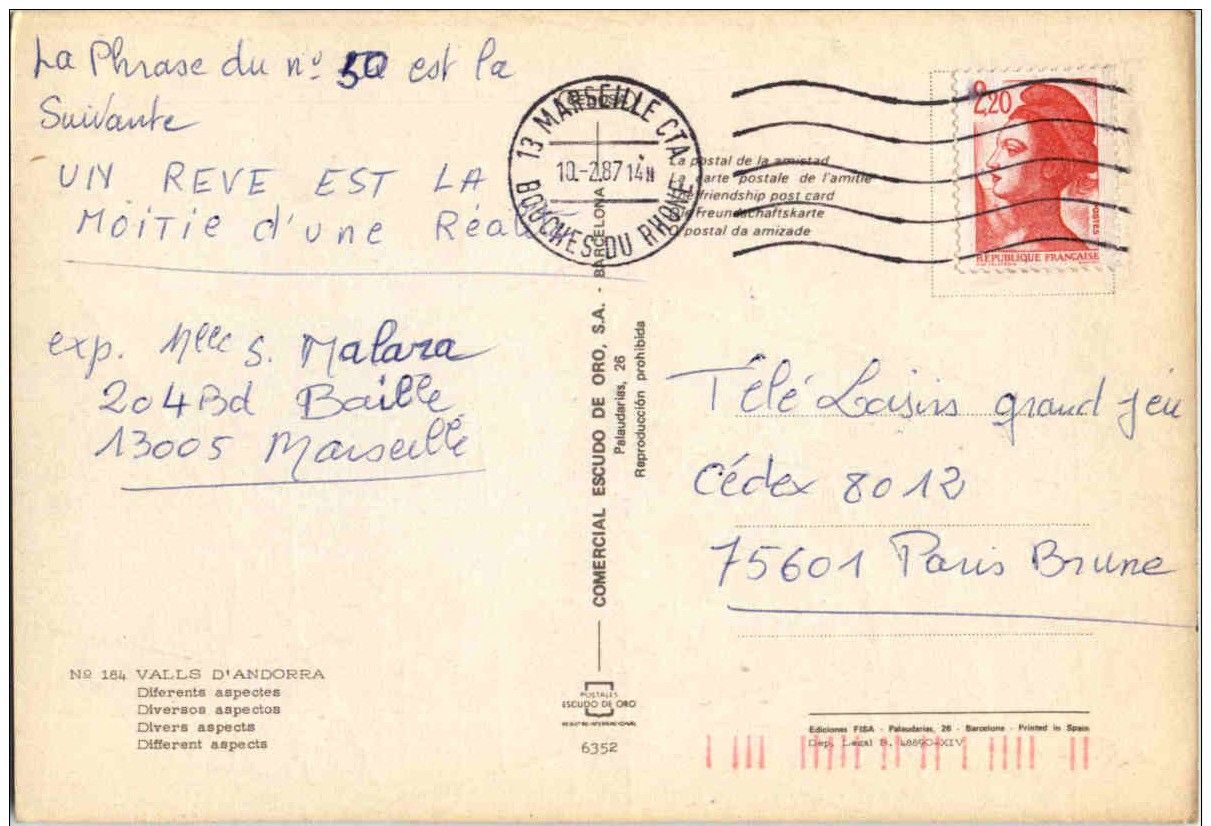 La Phrase du n° 50 est la
Suivante
UN REVE EST LA
MOITIE d'une
exp. Mlle S. Malara
204 Bd Baille
13005 Marseille
13 MARSEILLE CTA
10.-2.87 14H
BOUCHES DU RHONE
2,20
POSTES
REPUBLIQUE FRANÇAISE
La postal de la amistad
La carte postale de l'amitié
friendship post card
Freundschaftskarte
postal da amizade
COMERCIAL ESCUDO DE ORO, S.A. - BARCELONA
Palaudarias, 26
Reproducción prohibida
Télé Loisirs grand jeu
Cédex 8012
75601 Paris Brune
Nº 184 VALLS D'ANDORRA
Diferents aspectes
Diversos aspectos
Divers aspects
Different aspects
POSTALES
ESCUDO DE ORO
6352
Ediciones FISA - Palaudarias, 26 - Barcelona - Printed in Spain
Dep. Legal B. 48890-XIV